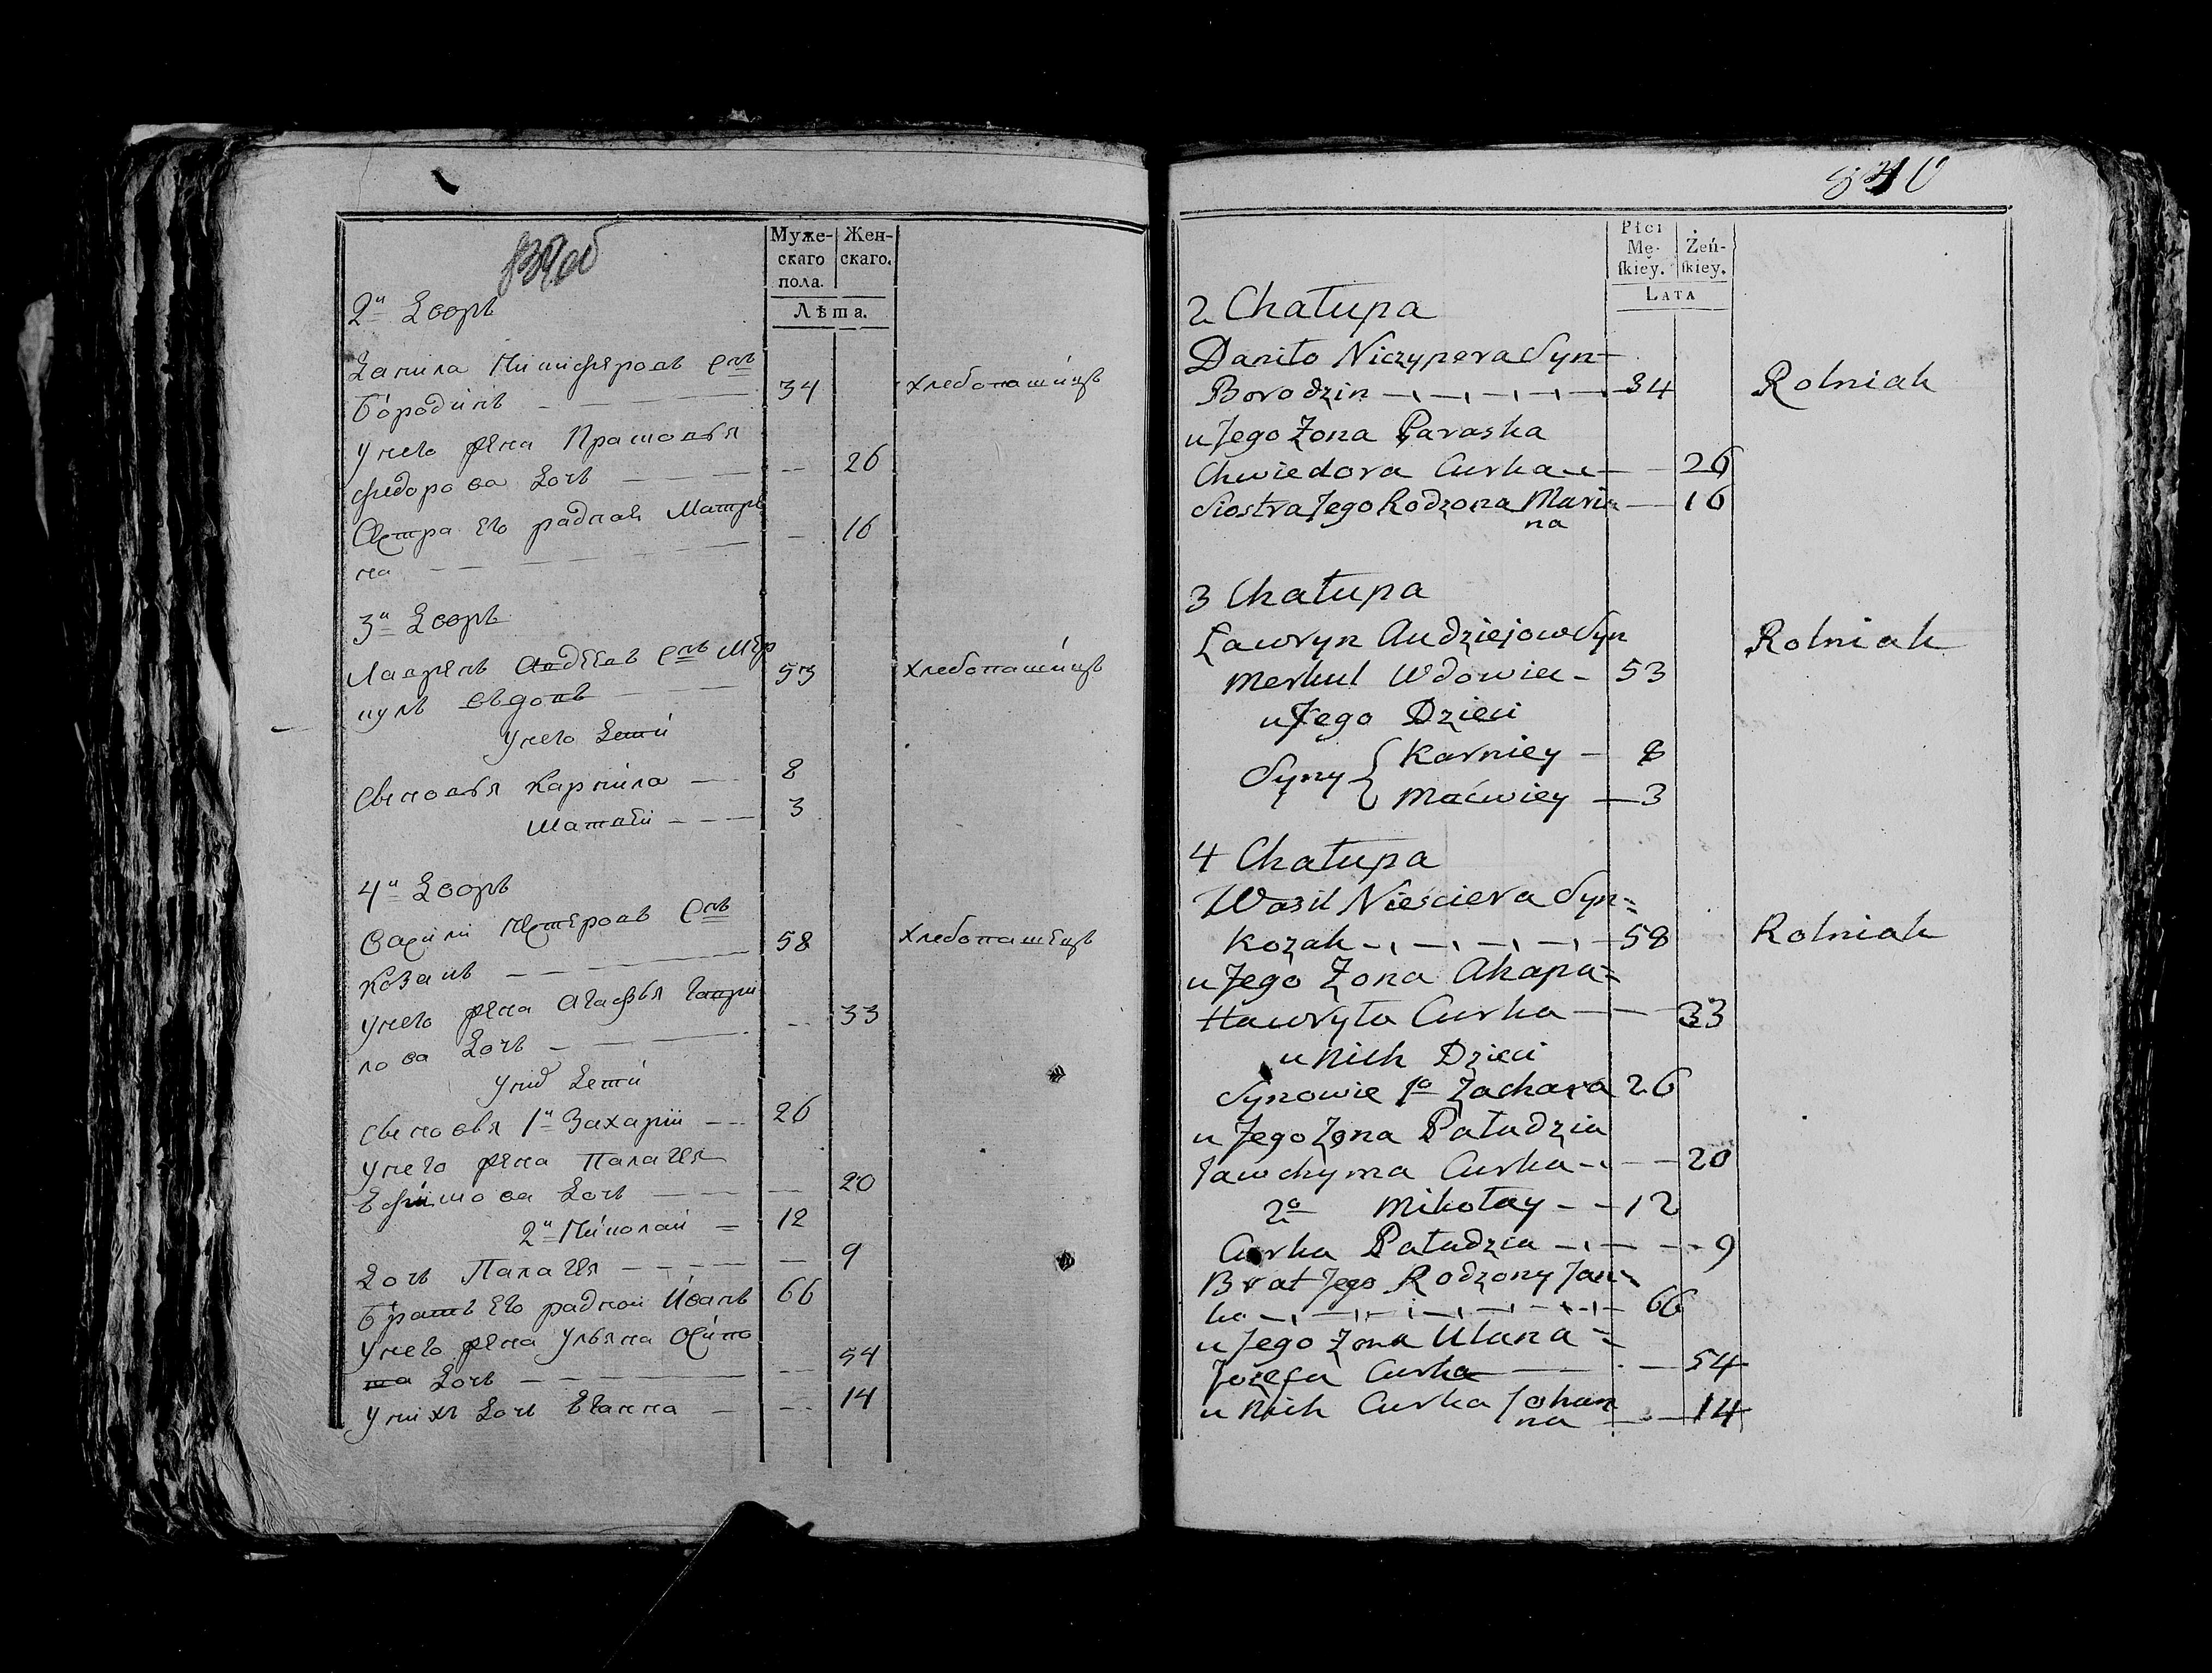 839об
Муже-
скаго
пола.
Жен-
скаго.
Лѣта.
2й Дворъ
Данила Ничиферовъ снъ
Бородинъ 34 хлебопашицъ
У него жена Прасковья
Федорова Дочь 26
Сестра Его радная Матрь 16
на
3й Дворъ
Лаврѣнъ Авдеевъ снъ Мер 53 хлебопашицъ
кулъ вдовъ
У него Дети
Сыновья Карнила 8
Матвей 3
4й Дворъ
Васили Нестеровъ снъ
Козакъ 58 хлебопашецъ
У него жена Агафья Гаври
лова Дочь 33
У нихъ Дети
Сыновья 1й Захарiй 26
У него жена Палагея
Ефимова Дочь 20
2й Николай 12
Дочь Палагея 9
Братъ Его радной Иванъ 66
У него жена Ульяна Осипо
ва Дочь 54
У нихъ Дочь Еганна 14
840
Płci
Mę-
skiey.
Żeń-
skiey.
LATA
2 Chałupa
Daniło Niczypera Syn
Borodzin 34 Rolniak
u Jego Żona Paraska
Chwiedora Curka 26
Siostra Jego Rodzona Mari 16
na
3 Chałupa
Ławryn Audziejow Syn Rolniak
Merkul Wdowiec 53
u Jego Dzieci
Syny { Karniey 8
Maćwiey 3
4 Chałupa
Wasil Nieściera Syn=
Kozak 58 Rolniak
u Jego Żona Ahapa=
Hawryła Curka 33
u Nich Dzieci
Synowie 1o Zachara 26
u Jego Żona Pałudzia
Jawchyma Curka 20
2o Mikołay 12
Curka Pałudzia 9
Brat Jego Rodzony Jan
ka 66
u Jego Żona Ulana=
Jozefa Curka 54
u Nich Curka Johan
na 14